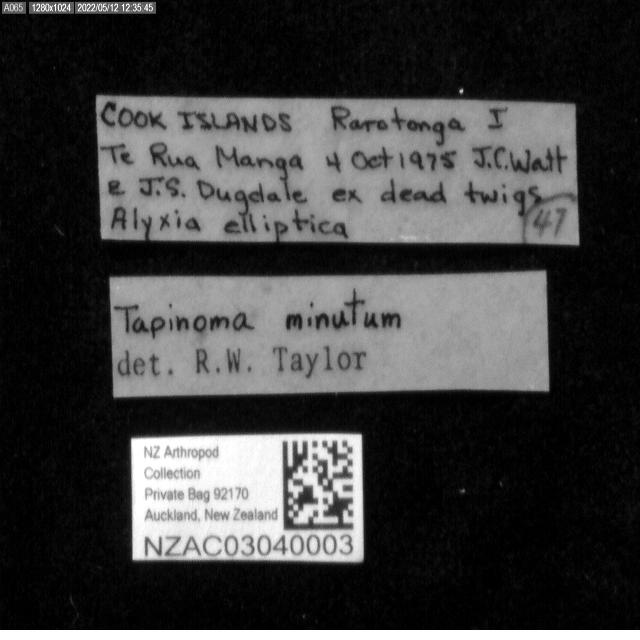 A065 1280x1024 2022/05/12 12:35:45
COOK ISLANDS Rarotonga I
Te Rua Manga 4 Oct 1975 J.C.Watt
& J.S. Dugdale ex dead twigs
Alyxia elliptica 47
Tapinoma minutum
det. R.W. Taylor
NZ Arthropod
Collection
Private Bag 92170
Auckland, New Zealand
NZAC03040003